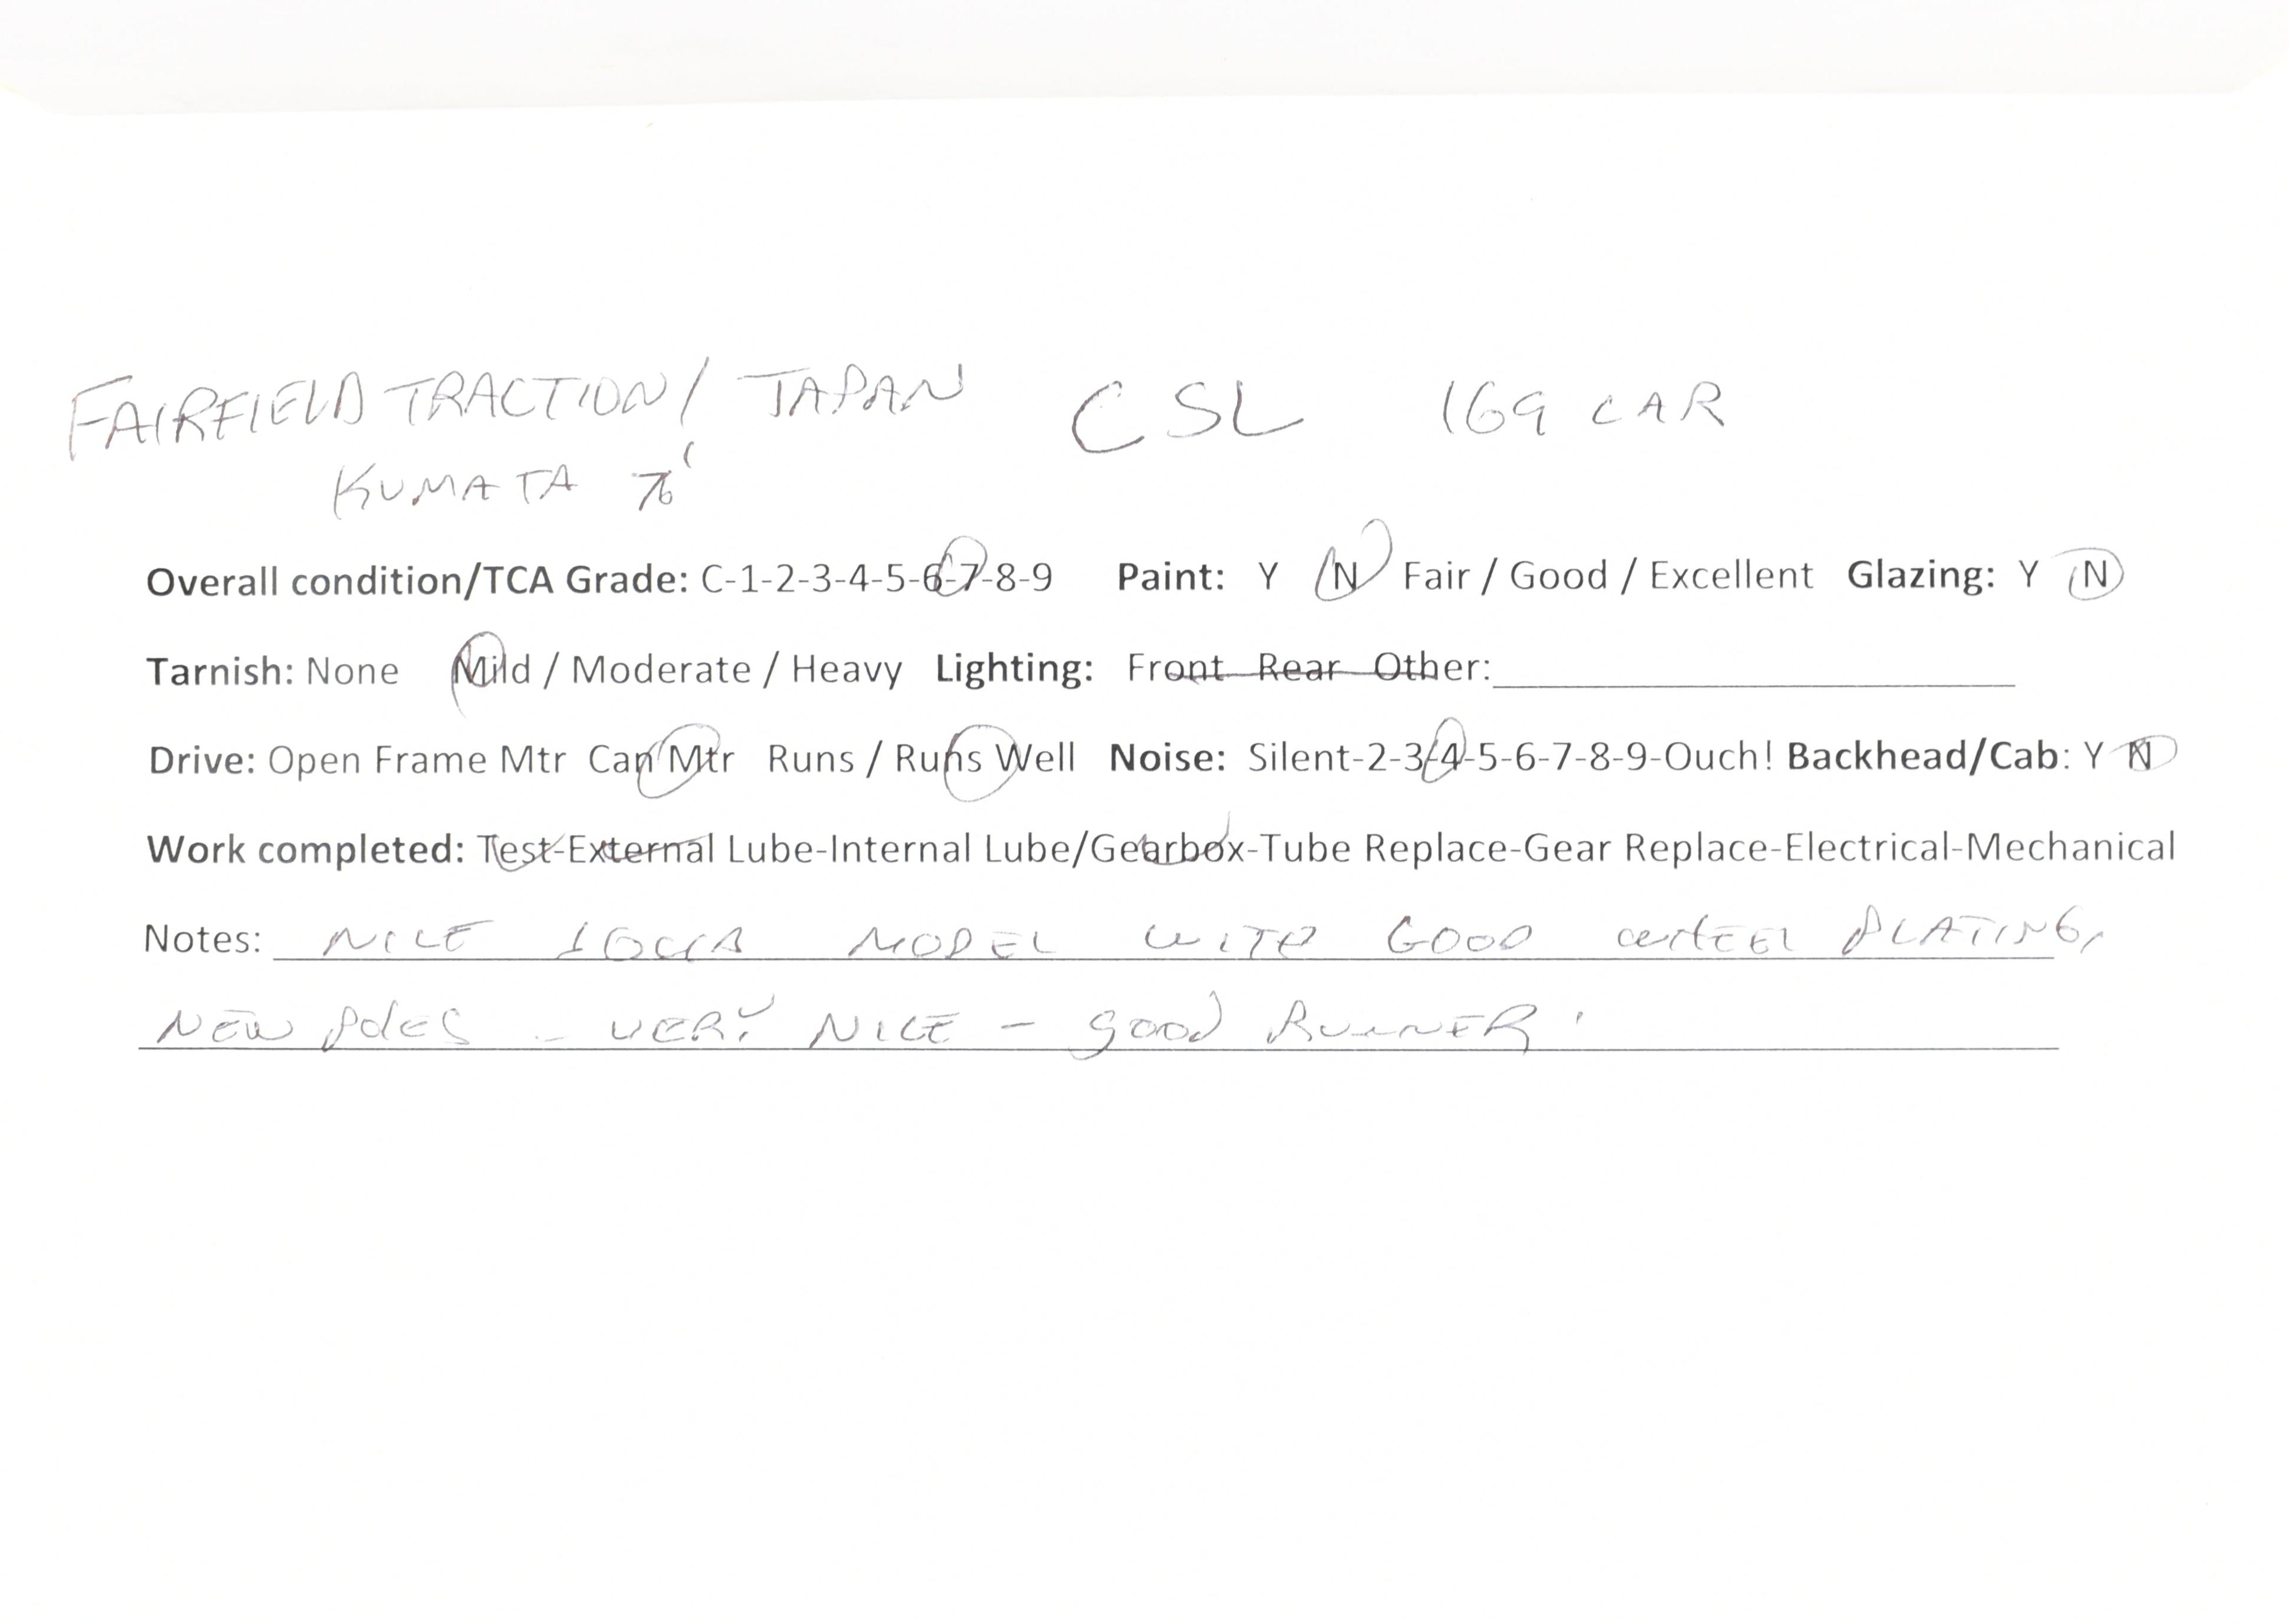 FAIRFIELD TRACTION / JAPAN CSL 169 CAR
KUMATA 76'
Overall condition/TCA Grade: C-1-2-3-4-5-6-7-8-9 Paint: Y N Fair / Good / Excellent Glazing: Y N
Tarnish: None Mild / Moderate / Heavy Lighting: Front Rear Other:
Drive: Open Frame Mtr Can Mtr Runs / Runs Well Noise: Silent-2-3-4-5-6-7-8-9-Ouch! Backhead/Cab: Y N
Work completed: Test-External Lube-Internal Lube/Gearbox-Tube Replace-Gear Replace-Electrical-Mechanical
Notes: NICE MODEL WITH GOOD WHEEL PLATING,
NEW POLES - VERY NICE - GOOD RUNNER.